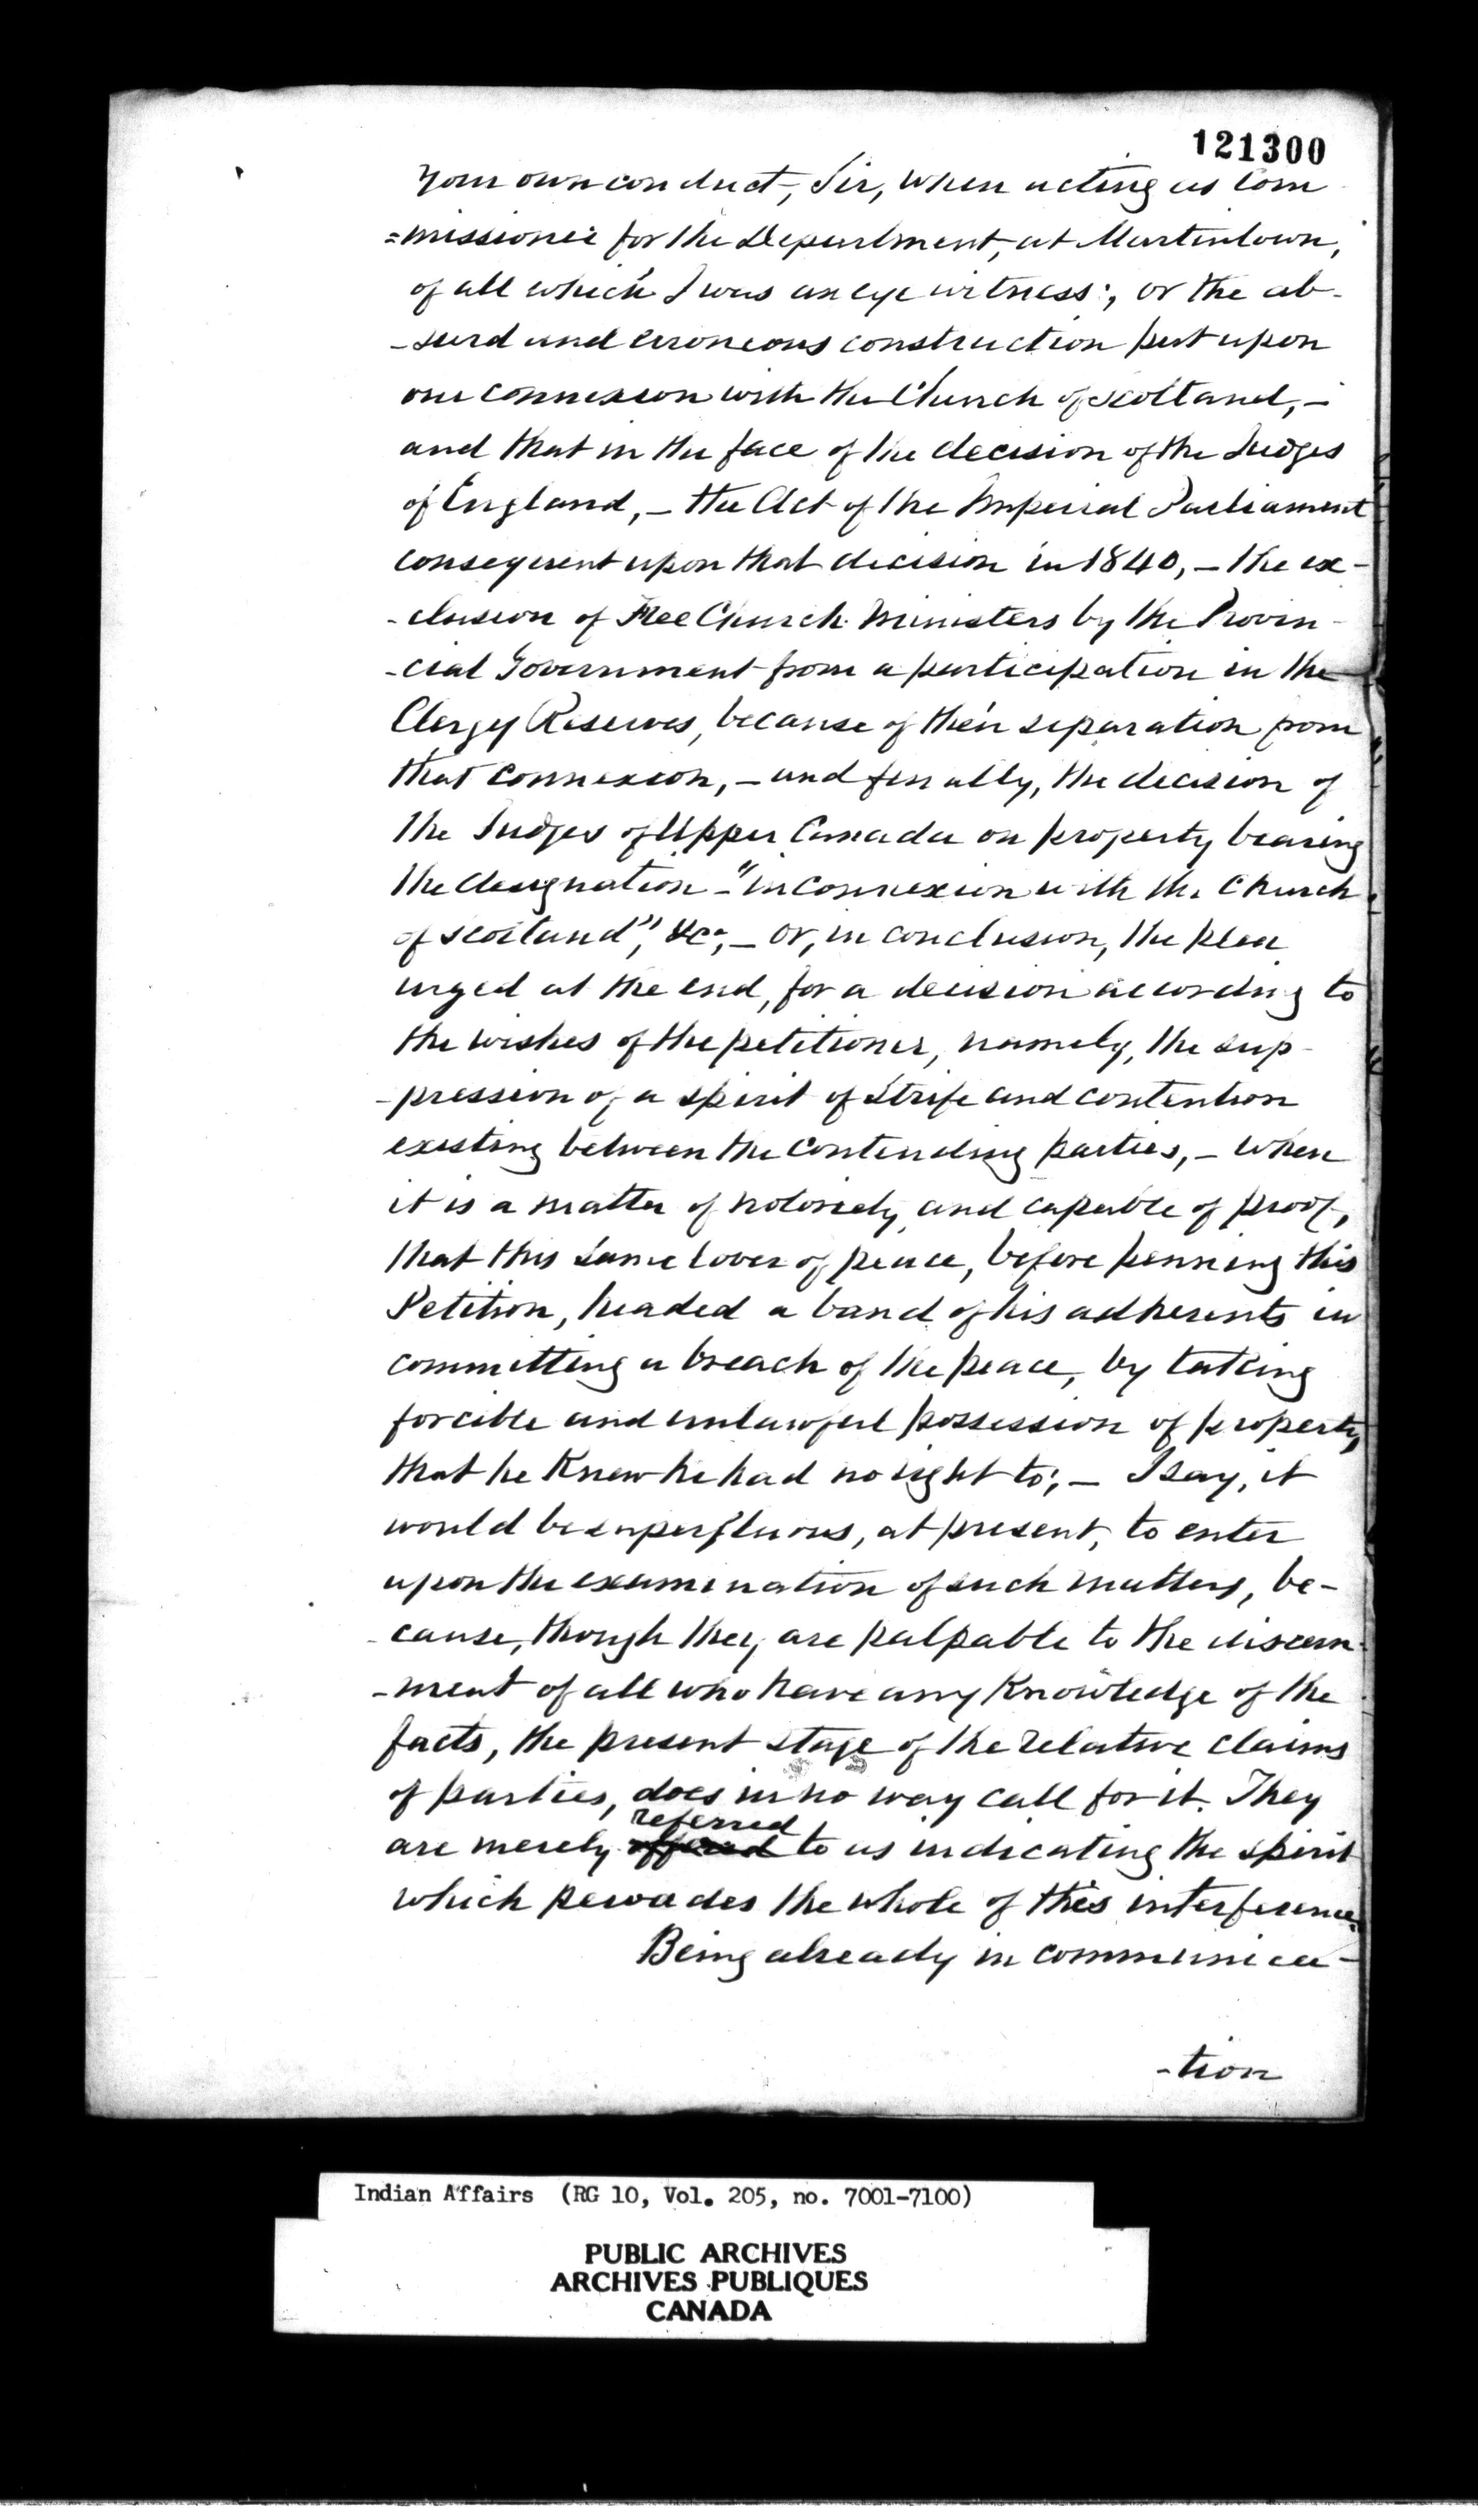 121300
your own conduct, Sir, when acting as Com
=missioner for the Department, at Martintown,
of all which I was an eye witness; or the ab-
-surd and erroneous construction put upon
our connexion with the Church of Scotland, -
and that in the face of the decision of the Judges
of England, - the Act of the Imperial Parliament
consequent upon that decision in 1840, - the ex-
-clusion of Free Church Ministers by the Provin-
-cial Government from a participation in the
Clergy Reserves, because of their separation from
that connexion, - and finally, the decision of
the Judges of Upper Canada on property bearing
the designation - "in connexion with the Church
of Scotland", &c, - or, in conclusion, the plea
urged at the end, for a decision according to
the wishes of the petitioner, namely, the sup-
-pression of a spirit of strife and contention
existing between the contending parties, - when
it is a matter of notoriety, and capable of proof,
that this same lover of peace, before penning this
Petition, headed a band of his adherents in
committing a breach of the peace, by taking
forcible and unlawful possession of property,
that he Knew he had no right to; - I say, it
would be superfluous, at present, to enter
upon the examination of such matters, be-
-cause, though they are palpable to the discern-
-ment of all who have any Knowledge of the
facts, the present stage of the relative claims
of parties, does in no way call for it. They
referred
are merely offered to as indicating the spirit
which pervades the whole of this interference.
Being already in communica-
-tion
Indian Affairs (RG 10, Vol. 205, no. 7001-7100)
PUBLIC ARCHIVES
ARCHIVES PUBLIQUES
CANADA